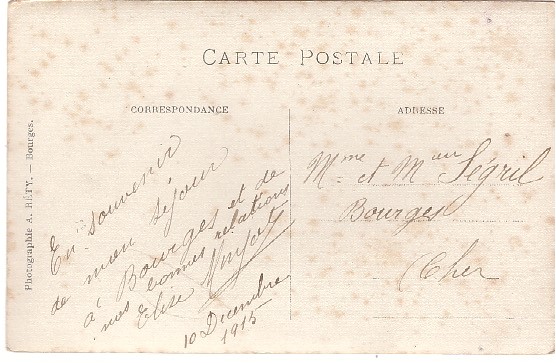 CARTE POSTALE
CORRESPONDANCE
En souvenir
de mon séjour
à Bourges et de
nos bonnes relations
Elise
10 Décembre
1915
ADRESSE
Mme et Meur Ségril
Bourges
Cher
Photographie A. RÉTY. — Bourges.